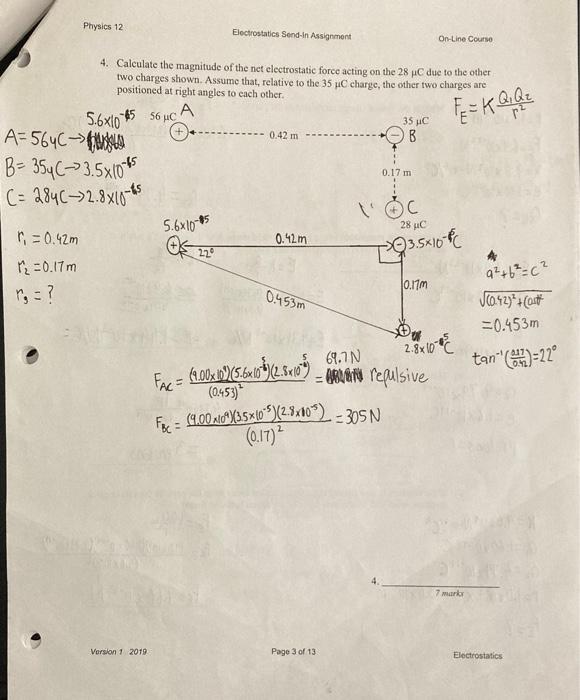 Physics 12
Electrostatics Send-In Assignment
On-Line Course
4. Calculate the magnitude of the net electrostatic force acting on the 28 µC due to the other
two charges shown. Assume that, relative to the 35 µC charge, the other two charges are
positioned at right angles to each other.
F_E = K Q₁Q₂/r²
5.6x10⁻⁵ 56 µC A
+ 0.42 m 35 µC
− B
A = 56µC →
B = 35µC → 3.5x10⁻⁵
C = 28µC → 2.8x10⁻⁵
0.17 m
+ C
28 µC
5.6x10⁻⁵
+ 22° 0.42m − 3.5x10⁻⁵C
r₁ = 0.42m
r₂ = 0.17m
r₃ = ?
0.453m
0.17m
+ 2.8x10⁻⁵C
a²+b²=c²
√(0.42)²+(0.17
=0.453m
tan⁻¹(0.17/0.42)=22°
F_AC = (9.00x10⁹)(5.6x10⁻⁵)(2.8x10⁻⁵)/(0.453)² = 69.7N repulsive
F_BC = (9.00x10⁹)(3.5x10⁻⁵)(2.8x10⁻⁵)/(0.17)² = 305N
4.
7 marks
Version 1 2019
Page 3 of 13
Electrostatics